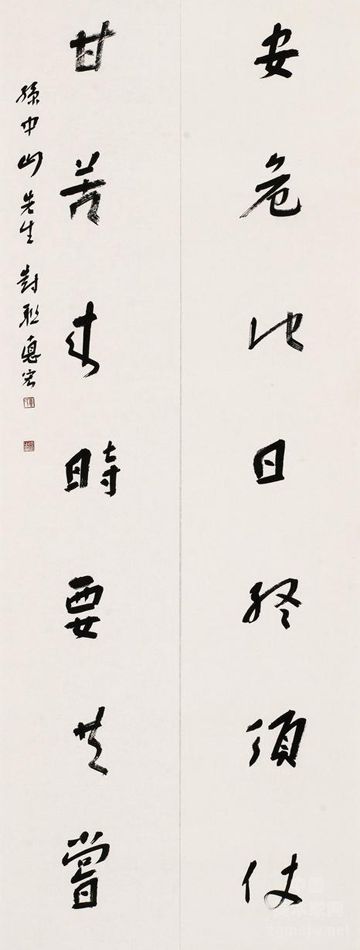 安危他日終須仗
甘苦來時要共嘗
孫中山先生對聯